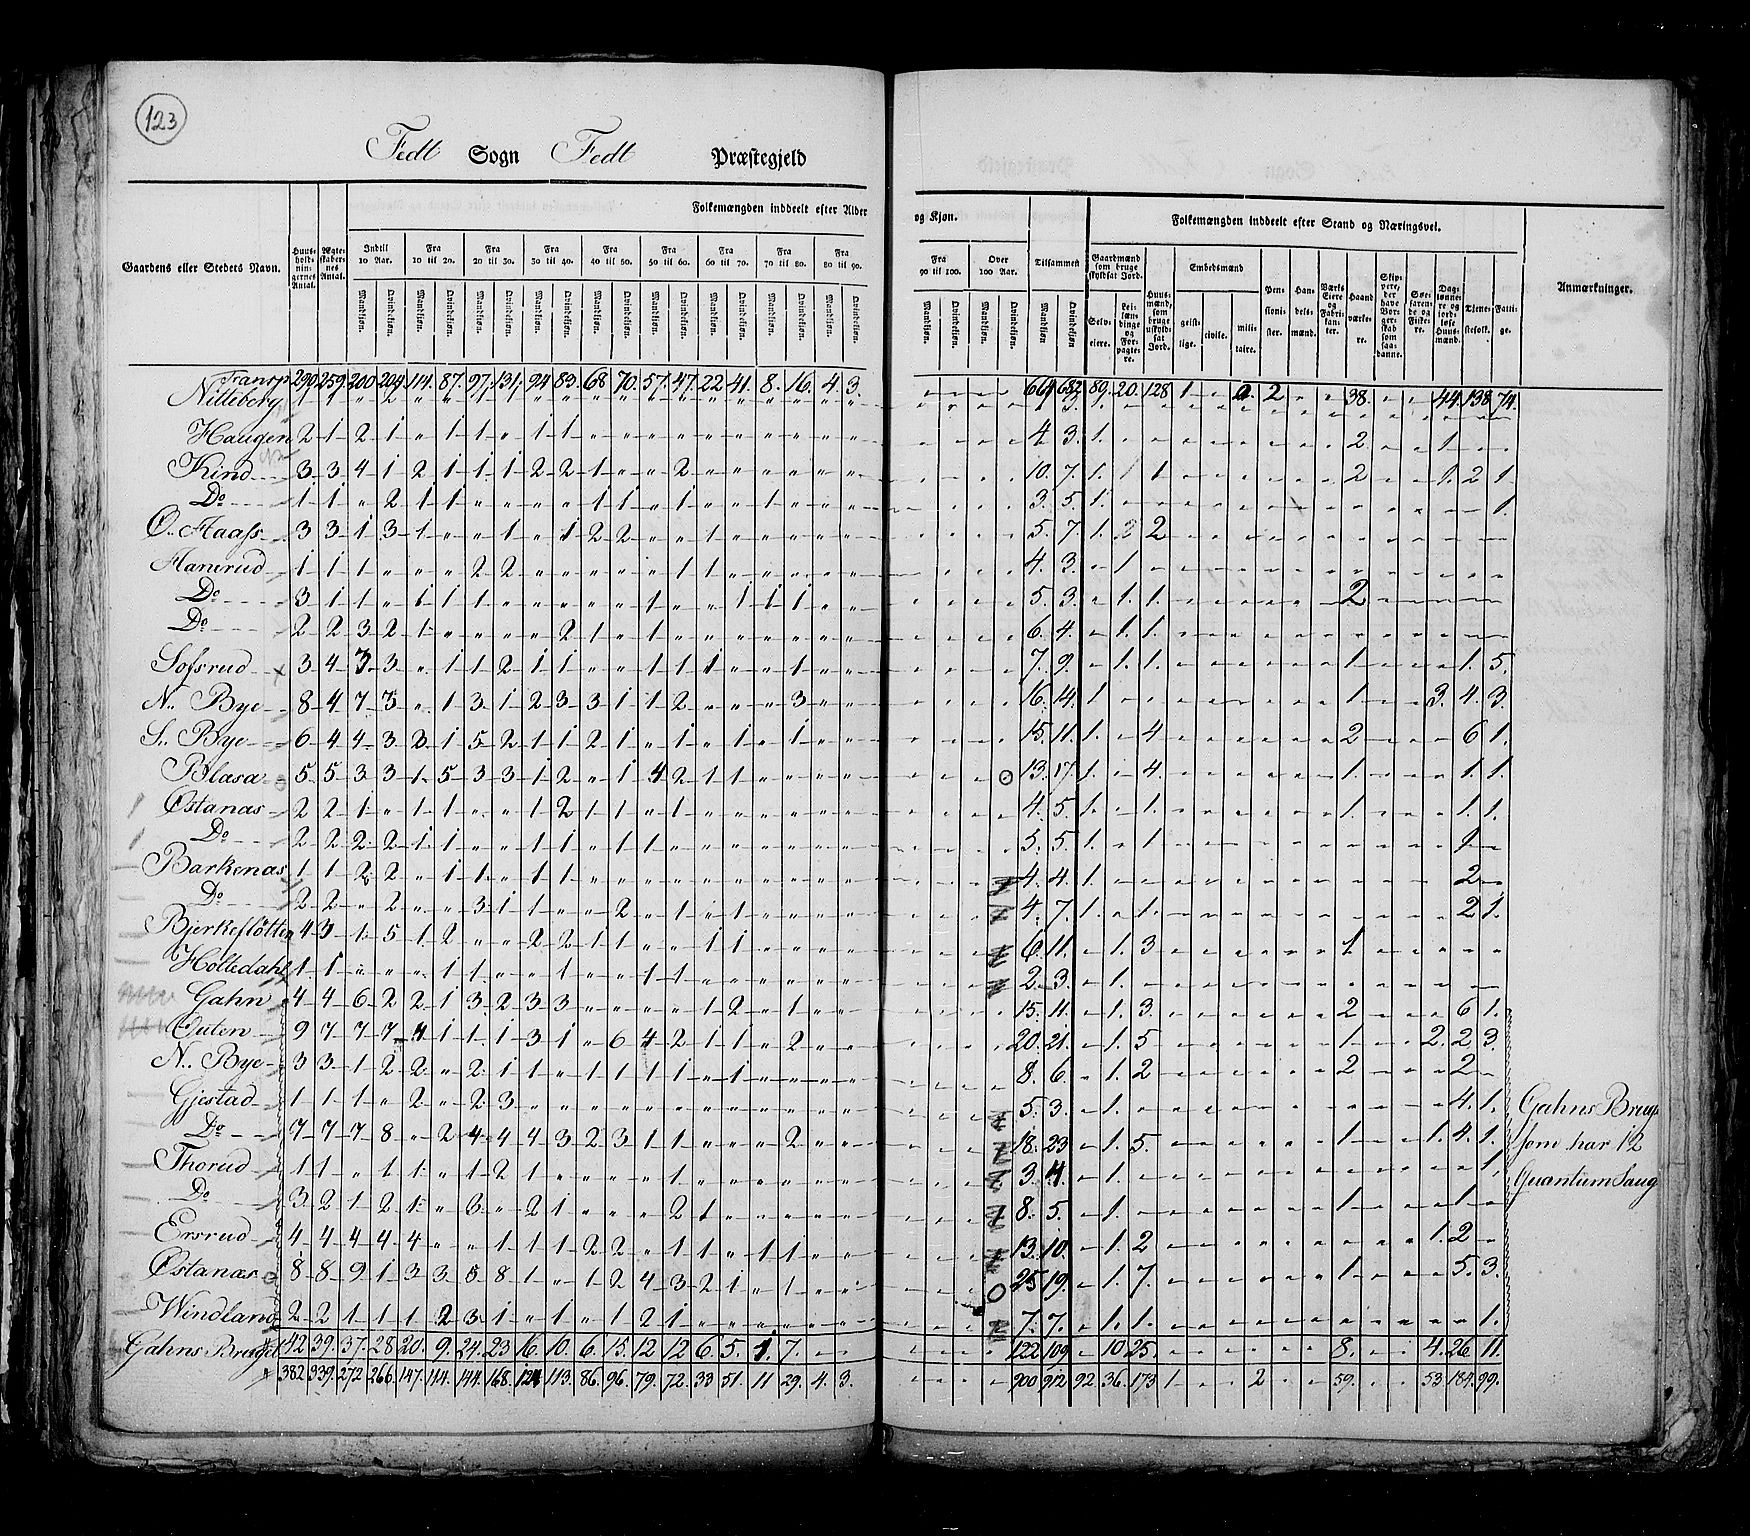 123
Fedt Sogn Fedt Præstegjeld
Folkemængden inddeelt efter Alder og Kjøn.
Folkemængden inddeelt efter Stand og Næringsvei.
Gaardens eller Stedets Navn.
Huusholdningernes Antal.
Ægteskabernes Antal.
Indtil 10 Aar.
Fra 10 til 20.
Fra 20 til 30.
Fra 30 til 40.
Fra 40 til 50.
Fra 50 til 60.
Fra 60 til 70.
Fra 70 til 80.
Fra 80 til 90.
Fra 90 til 100.
Over 100 Aar.
Tilsammen
Mandkjøn. Qvindekjøn.
Gaardmænd som bruge skyldsat Jord.
Selveiere.
Leilændinge og Forpagtere.
Huusmænd, som bruge uskyldsat Jord.
Embedsmænd
geistlige. civile. militaire.
Pensionister.
Handelsmænd.
Værks Eiere og Fabrikanter.
Haandværkere.
Skippere, der have Borgerskab som saadanne.
Søefarende og Fiskere.
Daglønnere og jordløse Huusmænd.
Tjenestefolk.
Fattige.
Anmærkninger.
Transp 299 259 200 204 114 87 97 131 94 83 68 70 57 47 22 41 8 16 4 3
Nilliberg
Haugen 2 1 2 1 " 1 1 " 1 1 4 3 1 2 1
Kind 3 3 4 1 2 1 1 1 2 2 1 " " 2 10 7 1 1 2 1 2 1
Do 1 1 " 2 1 1 3 5 1 1
O. Haass 3 3 1 3 1 " " 1 " 1 2 2 " " 1 5 7 1 2 2
Hanerud 1 1 1 " " " 2 2 4 3 " 1
Do 3 1 1 " 1 1 1 5 3 " 1 1 2
Do 2 2 3 2 1 " " " " 2 1 " 1 6 4 " 1 1
Sofsrud 3 4 3 3 " 1 1 2 1 1 " " 1 1 1 " " 1 7 9 " 1 1 1 1 5
N. Bye 8 4 7 3 " 1 3 1 2 3 3 1 1 2 " " " 3 16 14 1 1 3 4 3
S. Bye 6 4 4 3 2 1 5 2 1 1 2 1 " 1 " 1 " 1 15 11 1 " 4 2 6 1
Blasa 5 5 3 3 1 5 3 3 1 2 " 1 4 2 1 1 13 17 1 " 4 1 1 1
Østanas 2 2 1 " 1 1 " " 1 2 1 1 " 1 4 5 1 " 1 1 1 1
Do 2 2 2 2 1 1 " " 1 1 " 1 1 5 5 1 " 1
Barkenas 1 1 2 2 " 1 1 " 1 1 4 4 1 2
Do 2 2 " 2 " " 3 1 1 " " 2 " 1 " 1 4 7 1 " 1 2 1
Bjerkeflötten 4 3 1 5 1 2 " " 2 2 1 1 " " 1 1 6 11 " 1 3 1
Holledahl 1 1 " " " 1 1 " " 1 " " 1 1 2 3 " 1
Gahn 4 4 6 2 2 1 3 2 3 3 " " " " 1 2 " 1 15 11 " 1 3 2 6 1
Outen 9 7 7 7 4 1 1 1 3 1 " 6 4 2 1 1 " 2 20 21 " 1 5 1 2 2 3
N. Bye 3 3 1 2 2 " 2 1 1 " 1 1 1 1 " 1 8 6 " 1 2 2 2
Gjestad 1 1 1 " 2 " 2 3 5 3 " 1 4 1
Do 7 7 7 8 " 2 4 4 4 3 2 3 1 1 " " " 2 18 23 " 1 5 1 1 4 1
Thorud 1 1 " 1 1 " 1 2 1 " " " " 1 3 4 " 1 1
Do 3 2 1 2 1 " 3 " 2 1 " " " 2 1 8 5 " 1 1 1
Ersrud 4 4 4 4 4 " " 1 1 1 2 2 " 1 1 " 1 1 13 10 " 1 2 1 2
Østanas 8 8 9 1 3 3 5 8 1 " 1 2 4 3 2 1 " 1 25 19 " 1 7 1 5 3
Windland 2 2 1 1 1 2 3 1 " 1 " 1 2 1 7 7 " 1 1 1
Gahns Bruget 42 39 37 28 20 9 24 23 16 10 6 15 12 12 6 5 1 7 122 109 " 10 25 8 4 26 11
382 339 272 266 147 114 144 168 124 113 86 96 79 72 33 51 11 29 4 3 900 912 92 36 173 1 2 59 53 184 99
Gahns Brug
som har 12
Quantum Saug